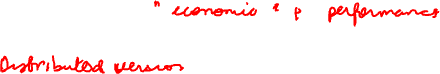 " economic & p performance
Distributed version